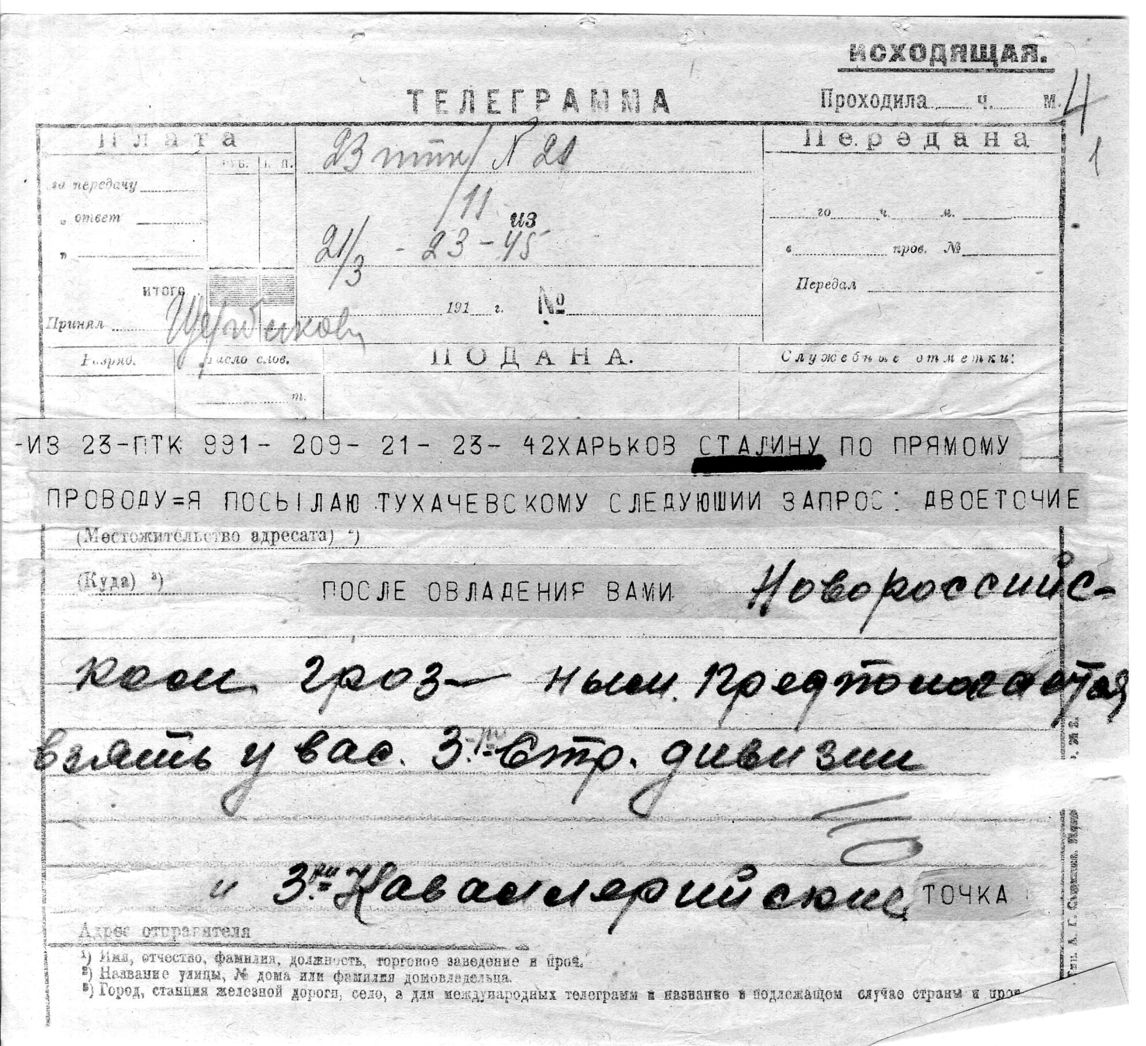 ИСХОДЯЩАЯ.
ТЕЛЕГРАММА
Проходила ч. м.
4
1
Плата
РУБ. К. П.
за передачу
„ ответ
„
ИТОГО
Принял
23 птк/ N 21
/11 из
21/3 - 23 - 45
191 г. №
Передана
го ч. м.
в пров. №
Передал
Разряд. Число слов.
ПОДАНА.
Служебные отметки:
-ИЗ 23-ПТК 991- 209- 21- 23- 42ХАРЬКОВ СТАЛИНУ ПО ПРЯМОМУ
ПРОВОДУ=Я ПОСЫЛАЮ ТУХАЧЕВСКОМУ СЛЕДУЮШИИ ЗАПРОС: ДВОЕТОЧИЕ
(Местожительство адресата) ²)
(Куда) ³)
ПОСЛЕ ОВЛАДЕНИЯ ВАМИ Новороссийс-
ком гроз- ным предпологается
взять у вас. 3-ри Стр. дивизии
и 3-ри Каваллерийские ТОЧКА
Адрес отправителя
¹) Имя, отчество, фамилия, должность, торговое заведение и проч.
²) Название улицы, № дома или фамилия домовладельца.
³) Город, станция железной дороги, село, а для международных телеграмм и название в подлежащем случае страны и